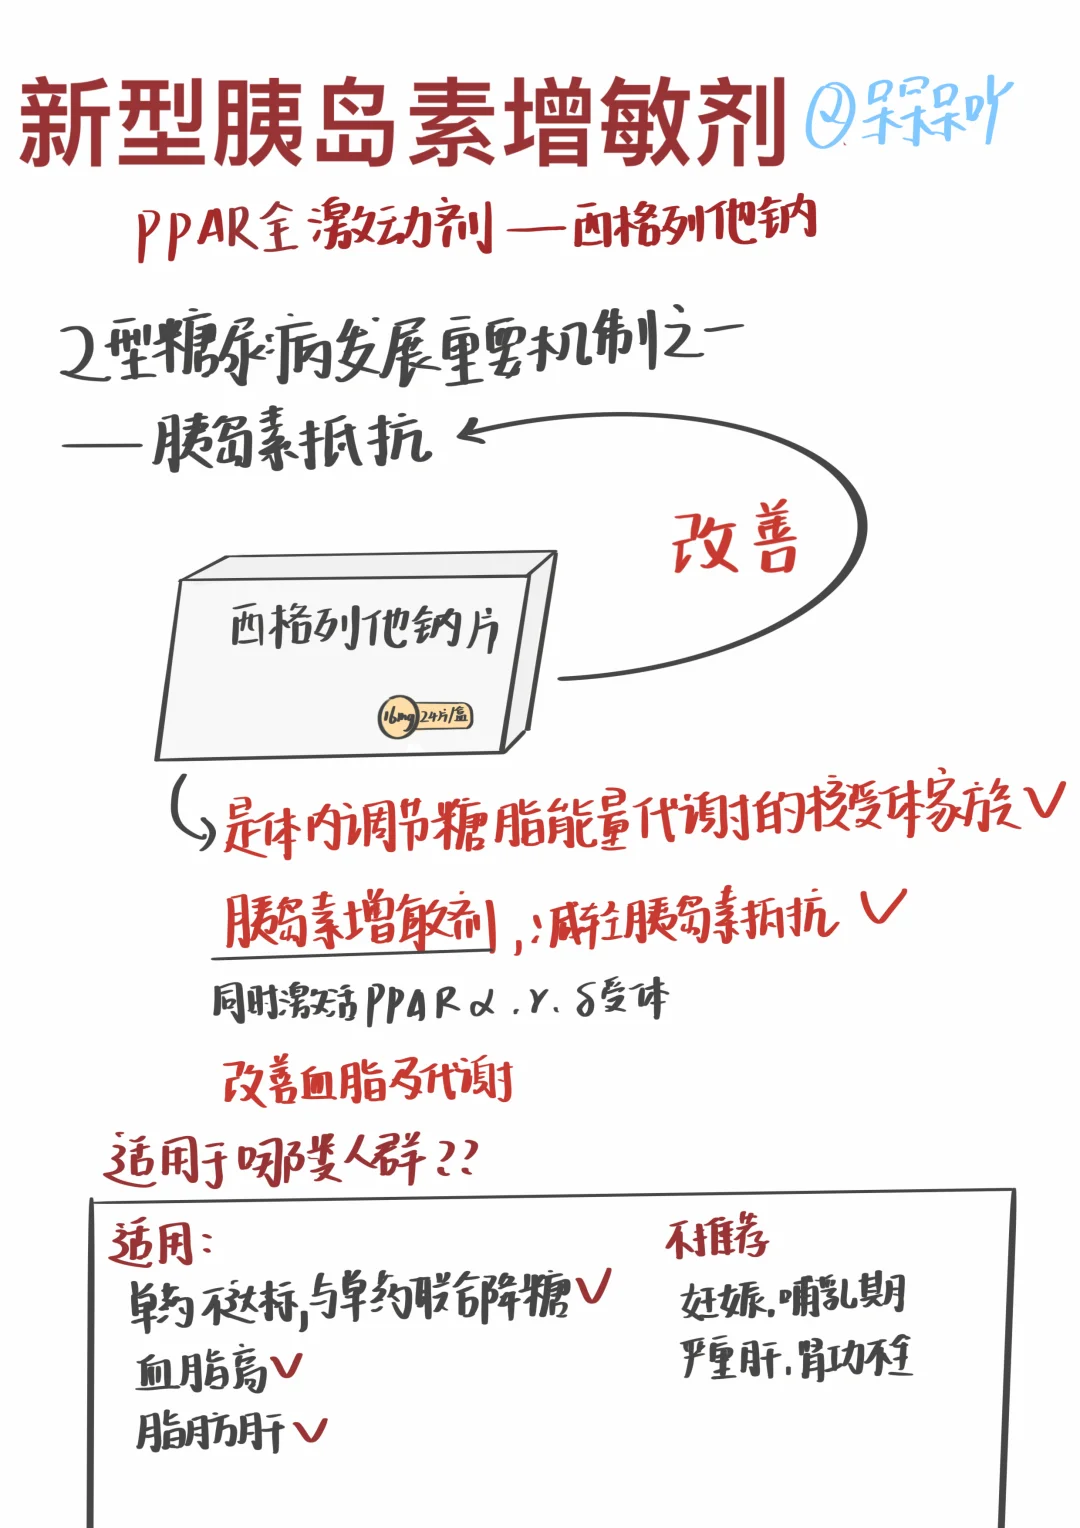 新型胰岛素增敏剂 @呆呆呆吖
PPAR全激动剂——西格列他钠
2型糖尿病发展重要机制之一
——胰岛素抵抗
改善
西格列他钠片
16mg 24片/盒
是体内调节糖脂能量代谢的核受体家族✓
胰岛素增敏剂,减轻胰岛素抵抗 ✓
同时激活PPARα.γ.δ受体
改善血脂及代谢
适用于哪类人群??
适用:
单药不达标,与单药联合降糖✓
血脂高✓
脂肪肝✓
不推荐
妊娠.哺乳期
严重肝.肾功不全